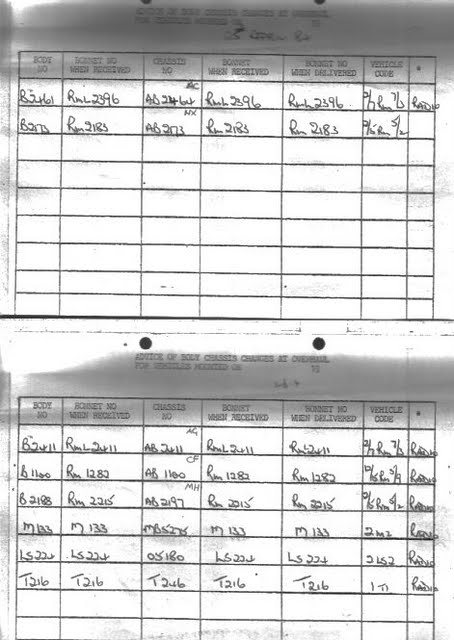 ADVICE OF BODY CHASSIS CHANGES AT OVERHAUL
FOR VEHICLES MOUNTED ON 19
BODY NO BONNET NO WHEN RECEIVED CHASSIS NO BONNET WHEN RECEIVED BONNET NO WHEN DELIVERED VEHICLE CODE *
B2461 RML2396 AB2464 AC RML2396 RML2396 2/7 RM 7/3 RADIO
B273 RM2183 AB273 NX RM2183 RM2183 RM 5/2
ADVICE OF BODY CHASSIS CHANGES AT OVERHAUL
FOR VEHICLES MOUNTED ON 19
BODY NO BONNET NO WHEN RECEIVED CHASSIS NO BONNET WHEN RECEIVED BONNET NO WHEN DELIVERED VEHICLE CODE *
B2411 RML2411 AB2411 RML2411 RML2411 2/7 RM 7/3 RADIO
B1100 RM1282 AB1100 CF RM1282 RM1282 RADIO
B2188 RM2215 AB2197 MH RM2215 RM2215 RM 5/2 RADIO
M133 M133 M133 M133 2M2 RADIO
LS224 LS224 05180 LS224 LS224 2LS2 RADIO
T216 T216 T216 T216 1T1 RADIO